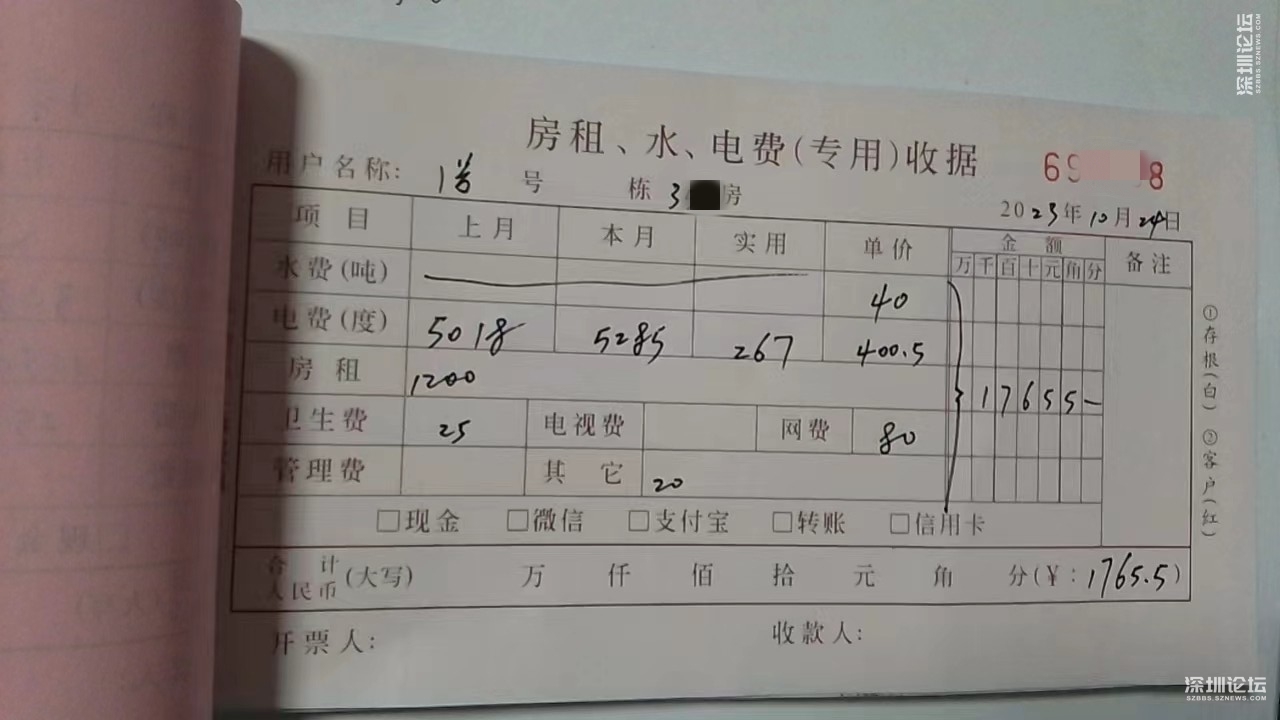 深圳论坛
SZBBS.SZNEWS.COM
房租、水、电费(专用)收据
用户名称: 1 号 栋 3 房
2023年10月24日
项目 上月 本月 实用 单价 金额 备注
万 千 百 十 元 角 分
水费(吨) 40
电费(度) 5018 5285 267 400.5
房租 1200 1 7 6 5 5 —
卫生费 25 电视费 网费 80
管理费 其它 20
□现金 □微信 □支付宝 □转账 □信用卡
合计人民币(大写) 万 仟 佰 拾 元 角 分(¥:1765.5)
开票人: 收款人:
①存根(白) ②客户(红)
深圳论坛
SZBBS.SZNEWS.COM